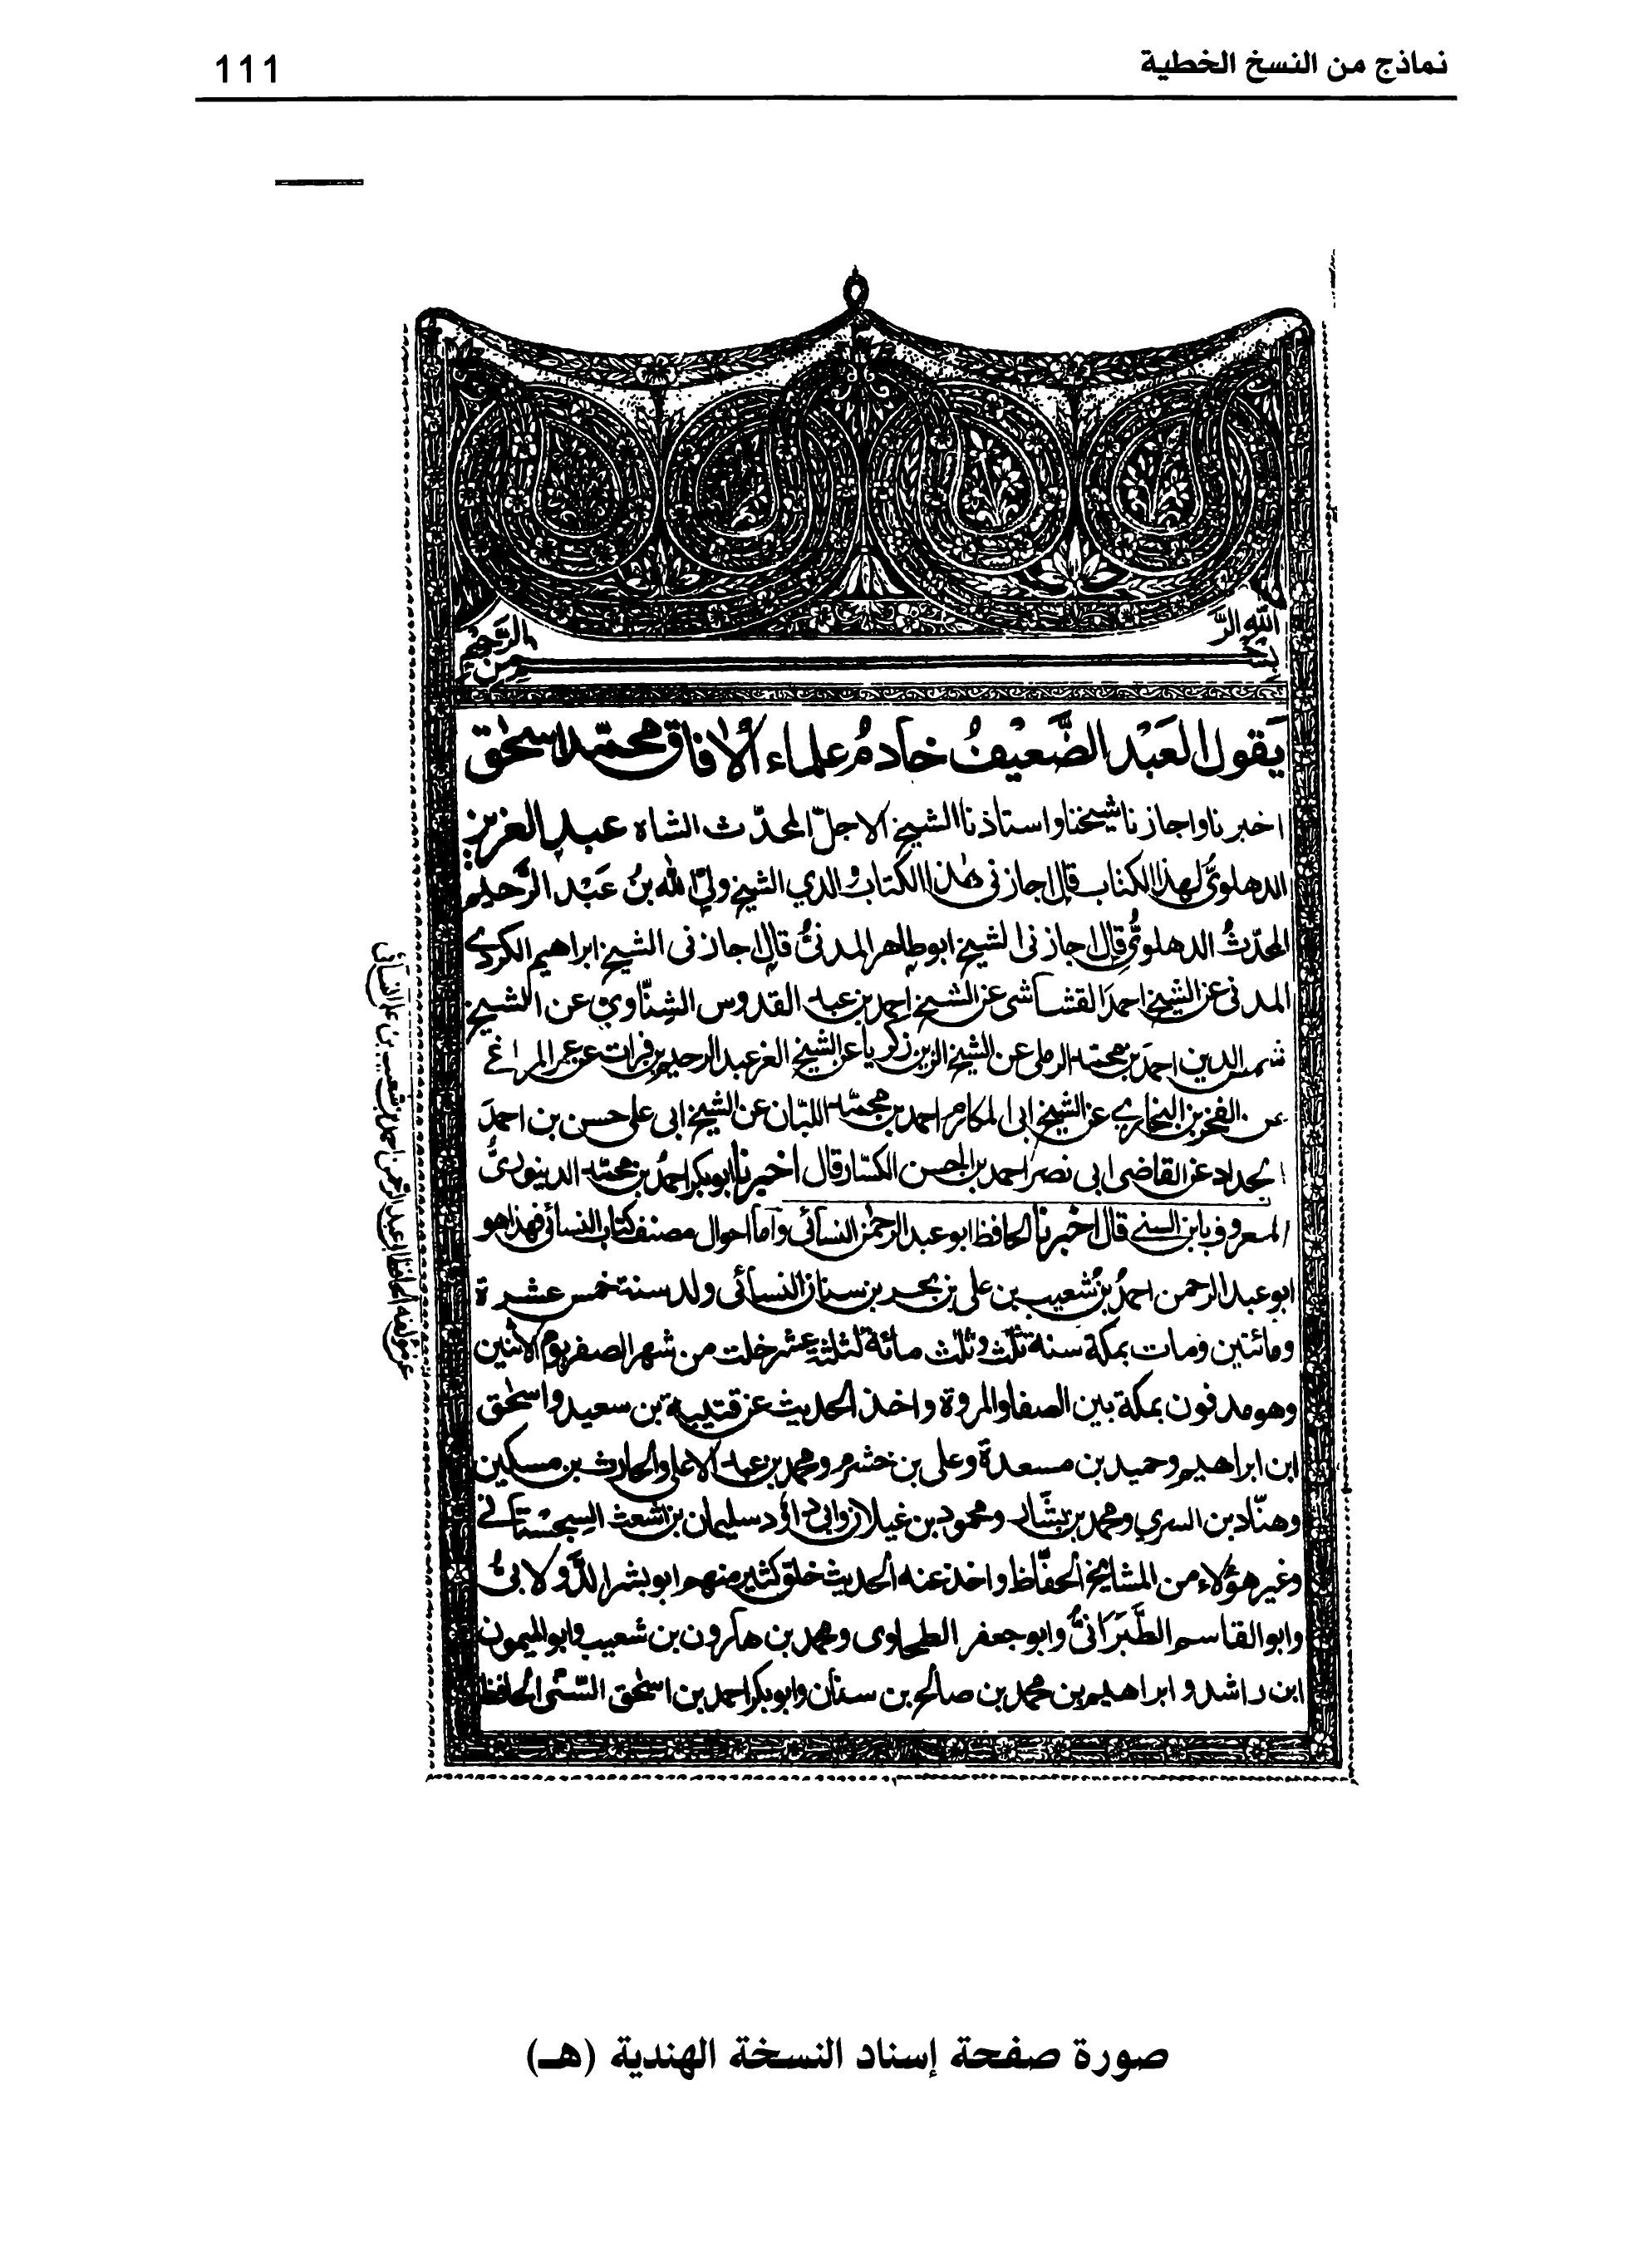 نماذج من النسخ الخطية
111
بسم الله الرحمن الرحيم
يقول العبد الضعيف خادم علماء الآفاق محمد اسحق
اخبرنا واجازنا شيخنا واستاذنا الشيخ الاجل المحدث الشاه عبد العزيز
الدهلوي لهذا الكتاب قال اجازني هذا الكتاب والدي الشيخ ولي الله بن عبد الرحيم
المحدث الدهلوي قال اجازني الشيخ ابو طاهر المدني قال اجازني الشيخ ابراهيم الكردي
المدني عن الشيخ احمد القشاشي عن الشيخ احمد بن عبد القدوس الشناوي عن الشيخ
شمس الدين احمد بن محمد الرملي عن الشيخ الزين زكريا عن الشيخ العز عبد الرحيم بن فرات عن عمر المراغي
عن الفخر بن البخاري عن الشيخ ابي المكارم احمد بن محمد اللبان عن الشيخ ابي علي حسن بن احمد
الحداد عن القاضي ابي نصر احمد بن الحسن الكسار قال اخبرنا ابو بكر احمد بن محمد الدينوري
المعروف بابن السني قال اخبرنا الحافظ ابو عبد الرحمن النسائي واما احوال مصنف كتاب النسائي فهذا هو
ابو عبد الرحمن احمد بن شعيب بن علي بن بحر بن سنان النسائي ولد سنة خمس عشرة
ومائتين ومات بمكة سنة ثلث وثلث مائة لثلثة عشر خلت من شهر الصفر يوم الاثنين
وهو مدفون بمكة بين الصفا والمروة واخذ الحديث عن قتيبة بن سعيد واسحق
ابن ابراهيم وحميد بن مسعدة وعلي بن خشرم ومحمد بن عبد الاعلى والحارث بن مسكين
وهناد بن السري ومحمد بن بشار ومحمود بن غيلان وابي داؤد سليمان بن اشعث السجستاني
وغير هؤلاء من المشايخ الحفاظ واخذ عنه الحديث خلق كثير منهم ابو بشر الدولابي
وابو القاسم الطبراني وابو جعفر الطحاوي ومحمد بن هارون بن شعيب وابو الميمون
ابن راشد و ابراهيم بن محمد بن صالح بن سنان وابو بكر احمد بن اسحق السني الحافظ
عن مؤلفه الحافظ ابي عبد الرحمن احمد بن شعيب بن علي النسائي
صورة صفحة إسناد النسخة الهندية (هـ)